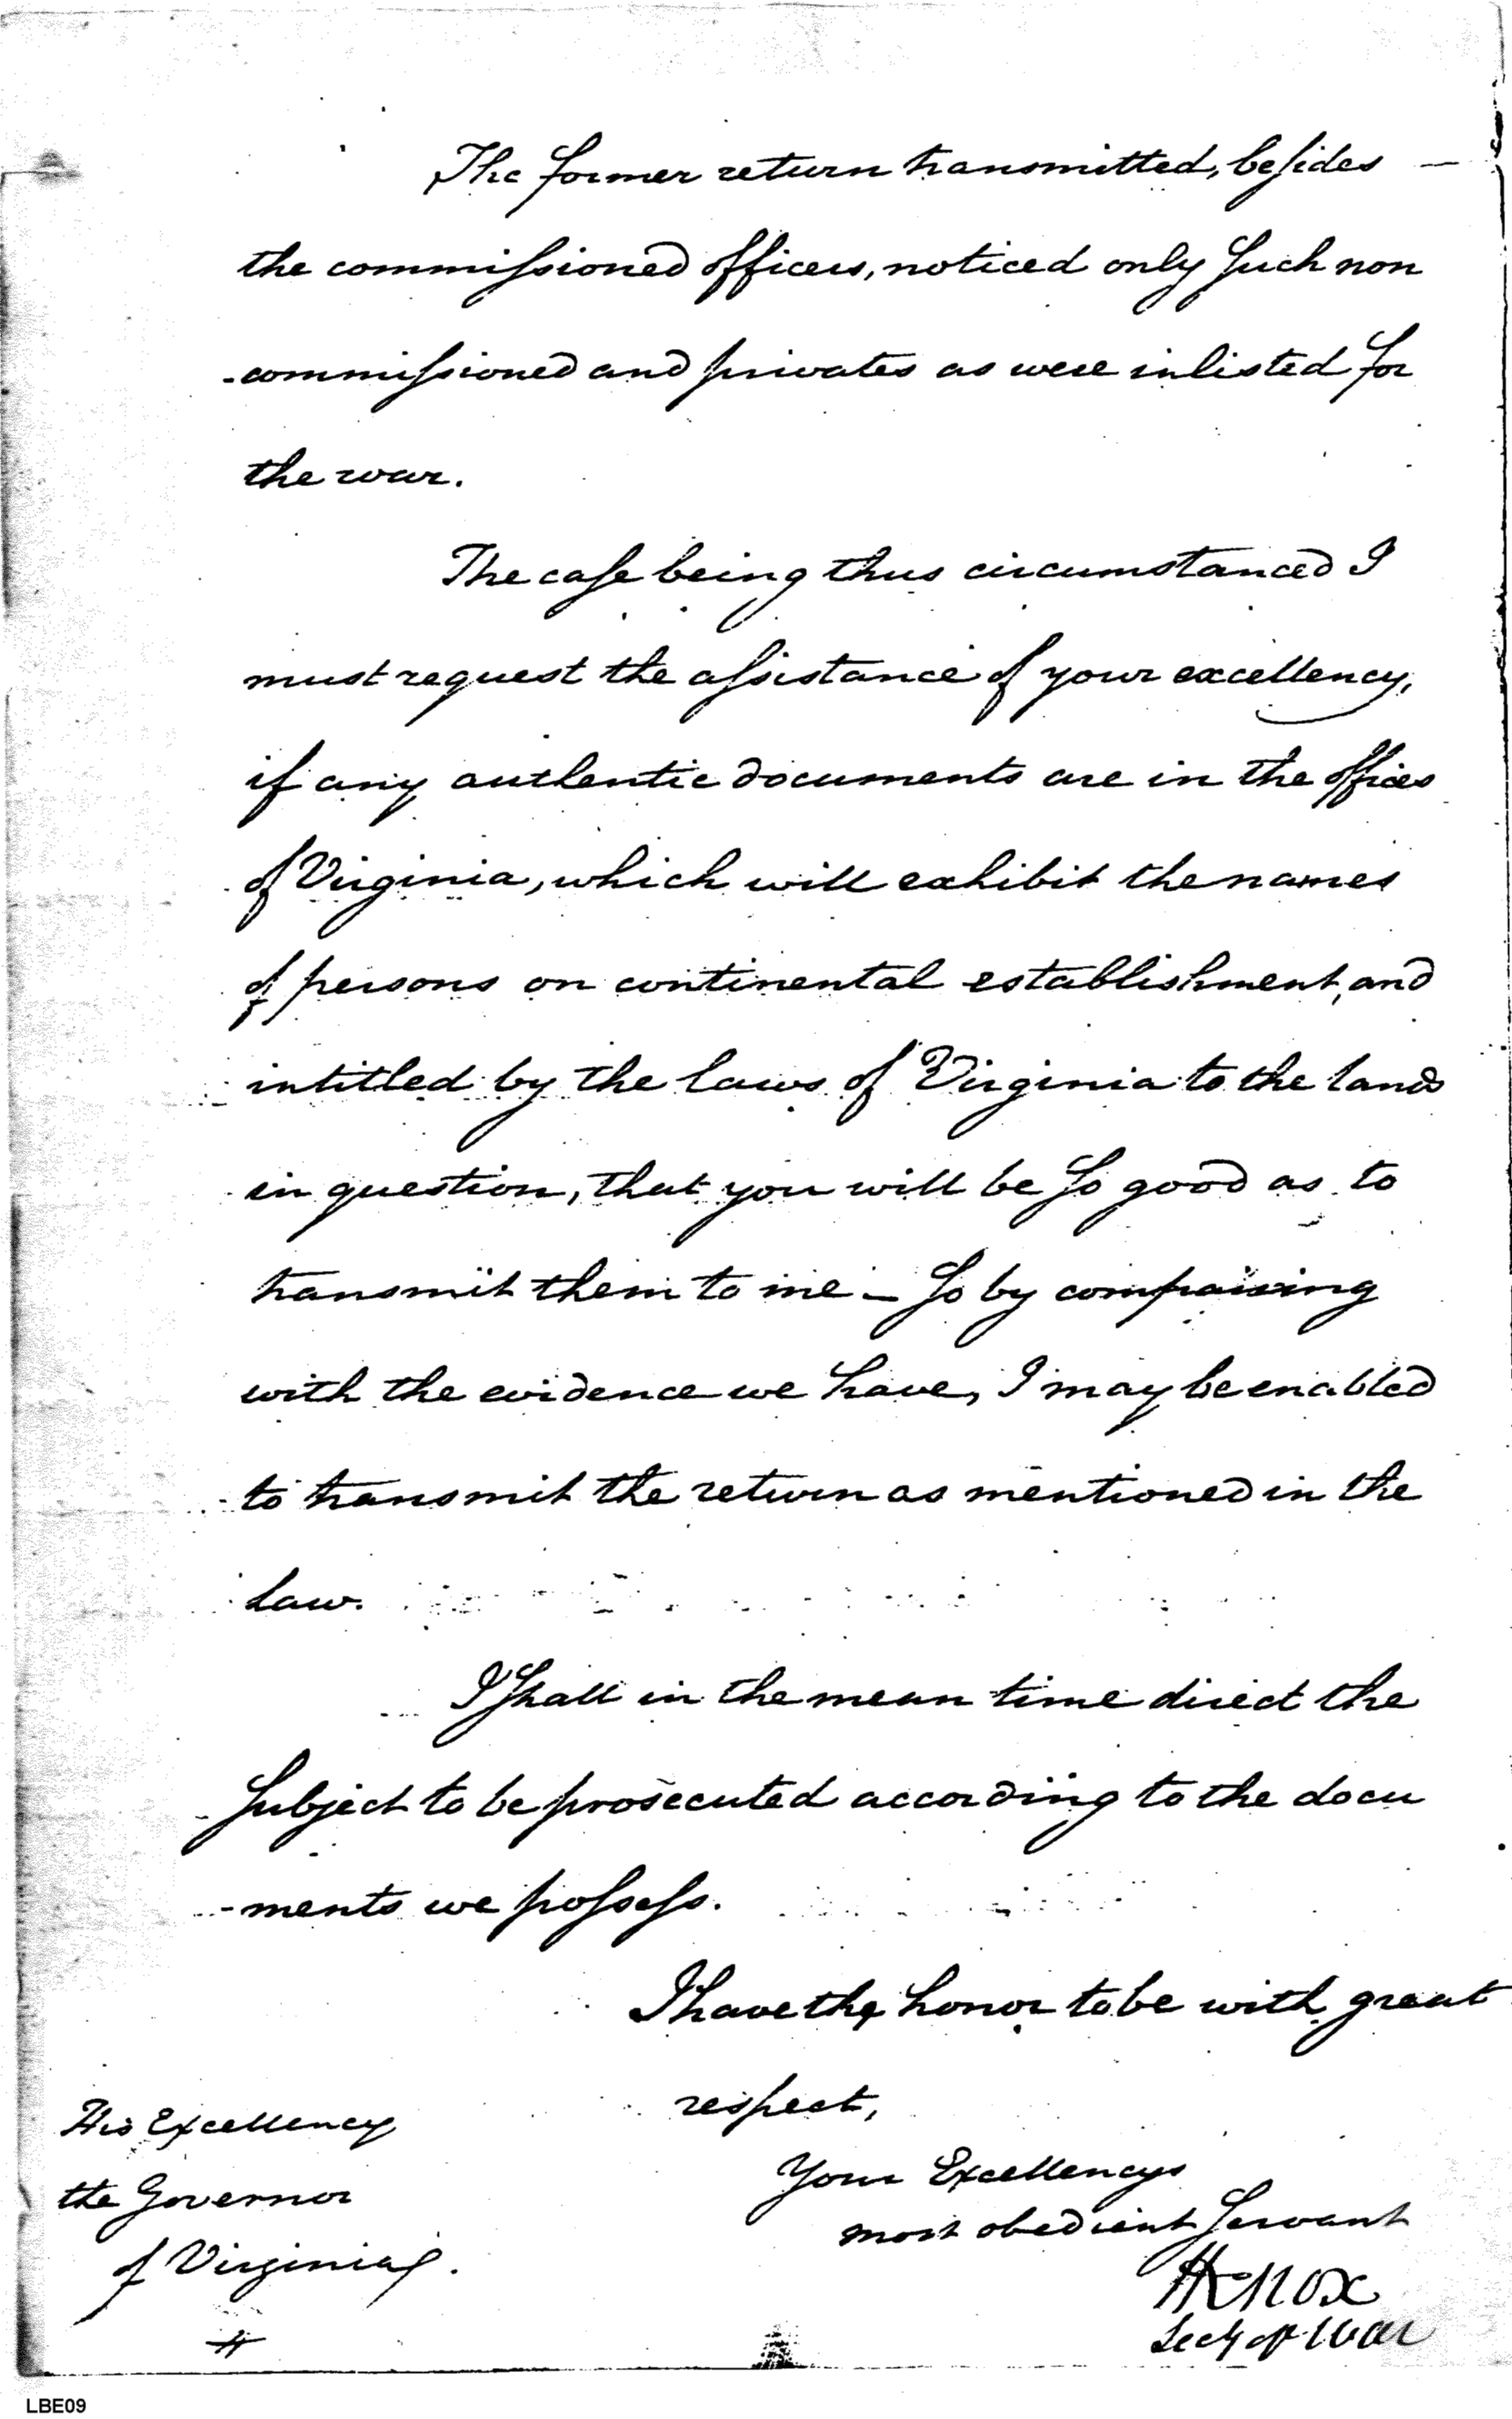 The former return transmitted, besides —
the commissioned officers, noticed only such non
-commissioned and privates as were inlisted for
the war.
The case being thus circumstanced I
must request the assistance of your excellency,
if any authentic documents are in the offices
of Virginia, which will exhibit the names
of persons on continental establishment, and
intitled by the laws of Virginia to the lands
in question, that you will be so good as to
transmit them to me — so by comparing
with the evidence we have, I may be enabled
to transmit the return as mentioned in the
law.
I shall in the mean time direct the
subject to be prosecuted according to the docu
-ments we possess.
I have the honor to be with great
respect,
Your Excellencys
most obedient servant
HKnox
Secy of War
His Excellency
the Governor
of Virginia.
LBE09